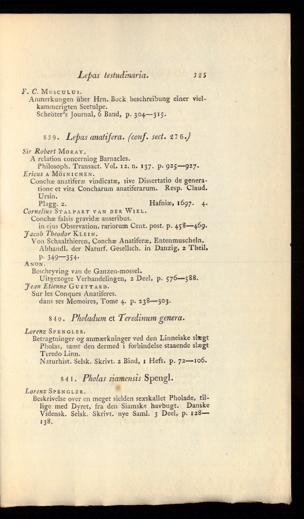 Lepas testudinaria. 325
F. C. MUSCULUS.
Anmerkungen über Hrn. Bock beschreibung einer viel-
kammerigten Seetulpe.
Schröter's Journal, 6 Band, p. 304—315.
839. Lepas anatifera. (conf. sect. 276.)
Sir Robert MORAY.
A relation concerning Barnacles.
Philosoph. Transact. Vol. 12. n. 137. p. 925—927.
Ericus a MÖINICHEN.
Conchæ anatiferæ vindicatæ, sive Dissertatio de genera-
tione et vita Concharum anatiferarum. Resp. Claud.
Ursin.
Plagg. 2. Hafniæ, 1697. 4.
Cornelius STALPART VAN DER WIEL.
Conchæ falsis gravidæ anseribus.
in ejus Observation. rariorum Cent. post. p. 458—469.
Jacob Theodor KLEIN.
Von Schalthieren, Conchæ Anatiferæ, Entenmuscheln.
Abhandl. der Naturf. Gesellsch. in Danzig, 2 Theil,
p. 349—354.
ANON.
Beschryving van de Ganzen-mossel.
Uitgezogte Verhandelingen, 2 Deel, p. 576—588.
Jean Etienne GUETTARD.
Sur les Conques Anatiferes.
dans ses Memoires, Tome 4. p. 238—303.
840. Pholadum et Teredinum genera.
Lorenz SPENGLER.
Betragtninger og anmærkninger ved den Linneiske slægt
Pholas, samt den dermed i forbindelse staaende slægt
Teredo Linn.
Naturhist. Selsk. Skrivt. 2 Bind, 1 Heft. p. 72—106.
841. Pholas siamensis Spengl.
Lorenz SPENGLER.
Beskrivelse over en meget sielden sexskallet Pholade, til-
lige med Dyret, fra den Siamske havbugt. Danske
Vidensk. Selsk. Skrivt. nye Saml. 3 Deel, p. 128—
138.